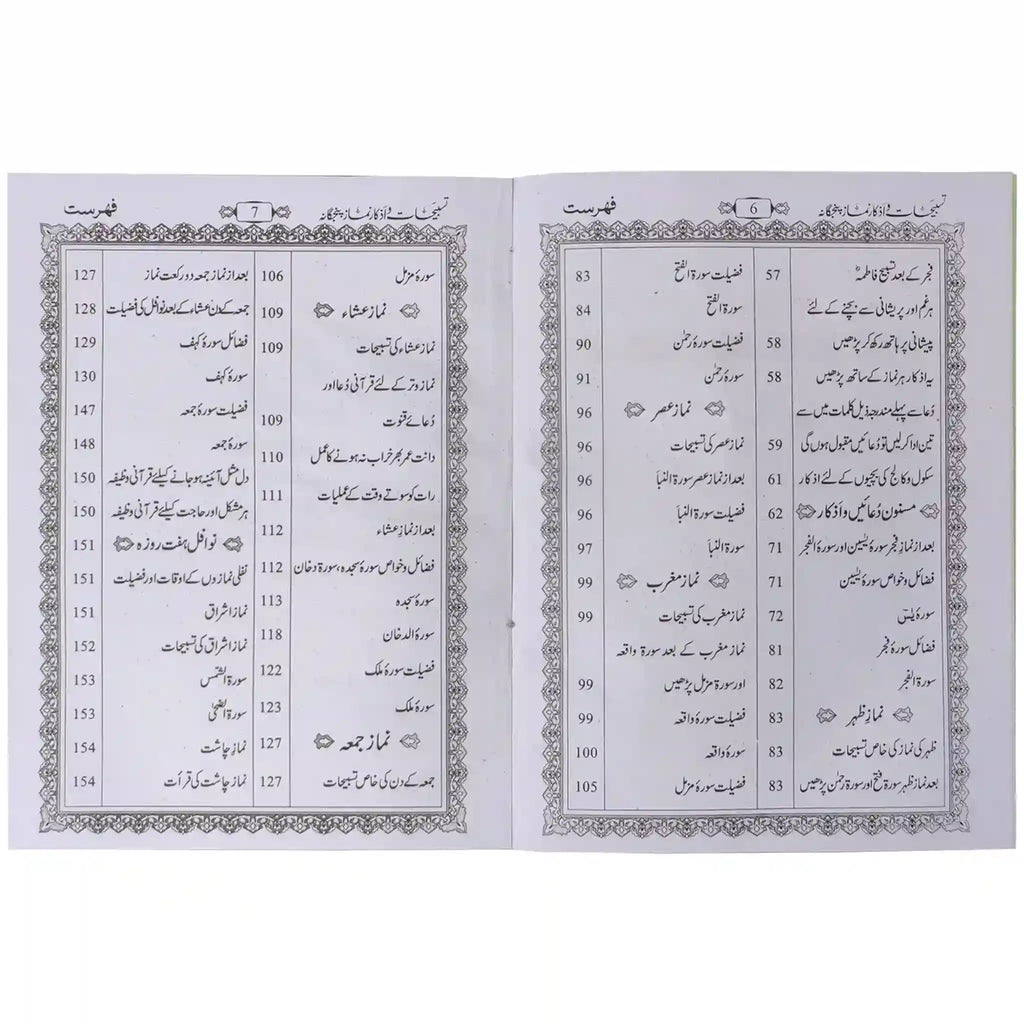 تسبیحات و اذکار نماز پنجگانہ 6 فہرست
فجر کے بعد تسبیح فاطمہؓ 57
ہر غم اور پریشانی سے بچنے کے لئے
پیشانی پر ہاتھ رکھ کر پڑھیں 58
یہ اذکار ہر نماز کے ساتھ پڑھیں 58
دُعا سے پہلے مندرجہ ذیل کلمات میں سے
تین ادا کر لیں تو دُعائیں مقبول ہوں گی 59
سکول و کالج کی بچیوں کے لئے اذکار 61
مسنون دُعائیں و اذکار 62
بعد از نماز فجر سورۂ یٰسین اور سورۃ الفجر 71
فضائل و خواص سورۂ یٰسین 71
سورۂ یٰسٓ 72
فضائل سورۂ فجر 81
سورۃ الفجر 82
نمازِ ظہر 83
ظہر کی نماز کی خاص تسبیحات 83
بعد نماز ظہر سورۃ فتح اور سورۃ رحمٰن پڑھیں 83
فضیلت سورۃ الفتح 83
سورۃ الفتح 84
فضیلت سورۂ رحمٰن 90
سورۂ رحمٰن 91
نماز عصر 96
نماز عصر کی تسبیحات 96
بعد از نماز عصر سورۃ النبا 96
فضیلت سورۃ النبا 96
سورۃ النبا 97
نماز مغرب 99
نماز مغرب کی تسبیحات 99
نماز مغرب کے بعد سورۃ واقعہ
اور سورۃ مزمل پڑھیں 99
فضیلت سورۂ واقعہ 99
سورۂ واقعہ 100
فضیلت سورۂ مزمل 105
تسبیحات و اذکار نماز پنجگانہ 7 فہرست
سورۂ مزمل 106
نماز عشاء 109
نماز عشاء کی تسبیحات 109
نماز وتر کے لئے قرآنی دُعا اور
دُعائے قنوت 109
دانت عمر بھر خراب نہ ہونے کا عمل 110
رات کو سوتے وقت کے عملیات 111
بعد از نماز عشاء 112
فضائل و خواص سورۂ سجدہ، سورۃ دخان 112
سورۂ سجدہ 113
سورۃ الدخان 118
فضیلت سورۂ ملک 122
سورۂ ملک 123
نماز جمعہ 127
جمعہ کے دن کی خاص تسبیحات 127
بعد از نماز جمعہ دو رکعت نماز 127
جمعہ کے دن عشاء کے بعد نوافل کی فضیلت 128
فضائل سورۂ کہف 129
سورۂ کہف 130
فضیلت سورۂ جمعہ 147
سورۂ جمعہ 148
دل مثل آئینہ ہو جانے کیلئے قرآنی وظیفہ 150
ہر مشکل اور حاجت کیلئے قرآنی وظیفہ 150
نوافل ہفت روزہ 151
نفلی نمازوں کے اوقات اور فضیلت 151
نماز اشراق 151
نماز اشراق کی تسبیحات 152
سورۃ الشمس 153
سورۃ الضحیٰ 153
نماز چاشت 154
نماز چاشت کی قرأت 154